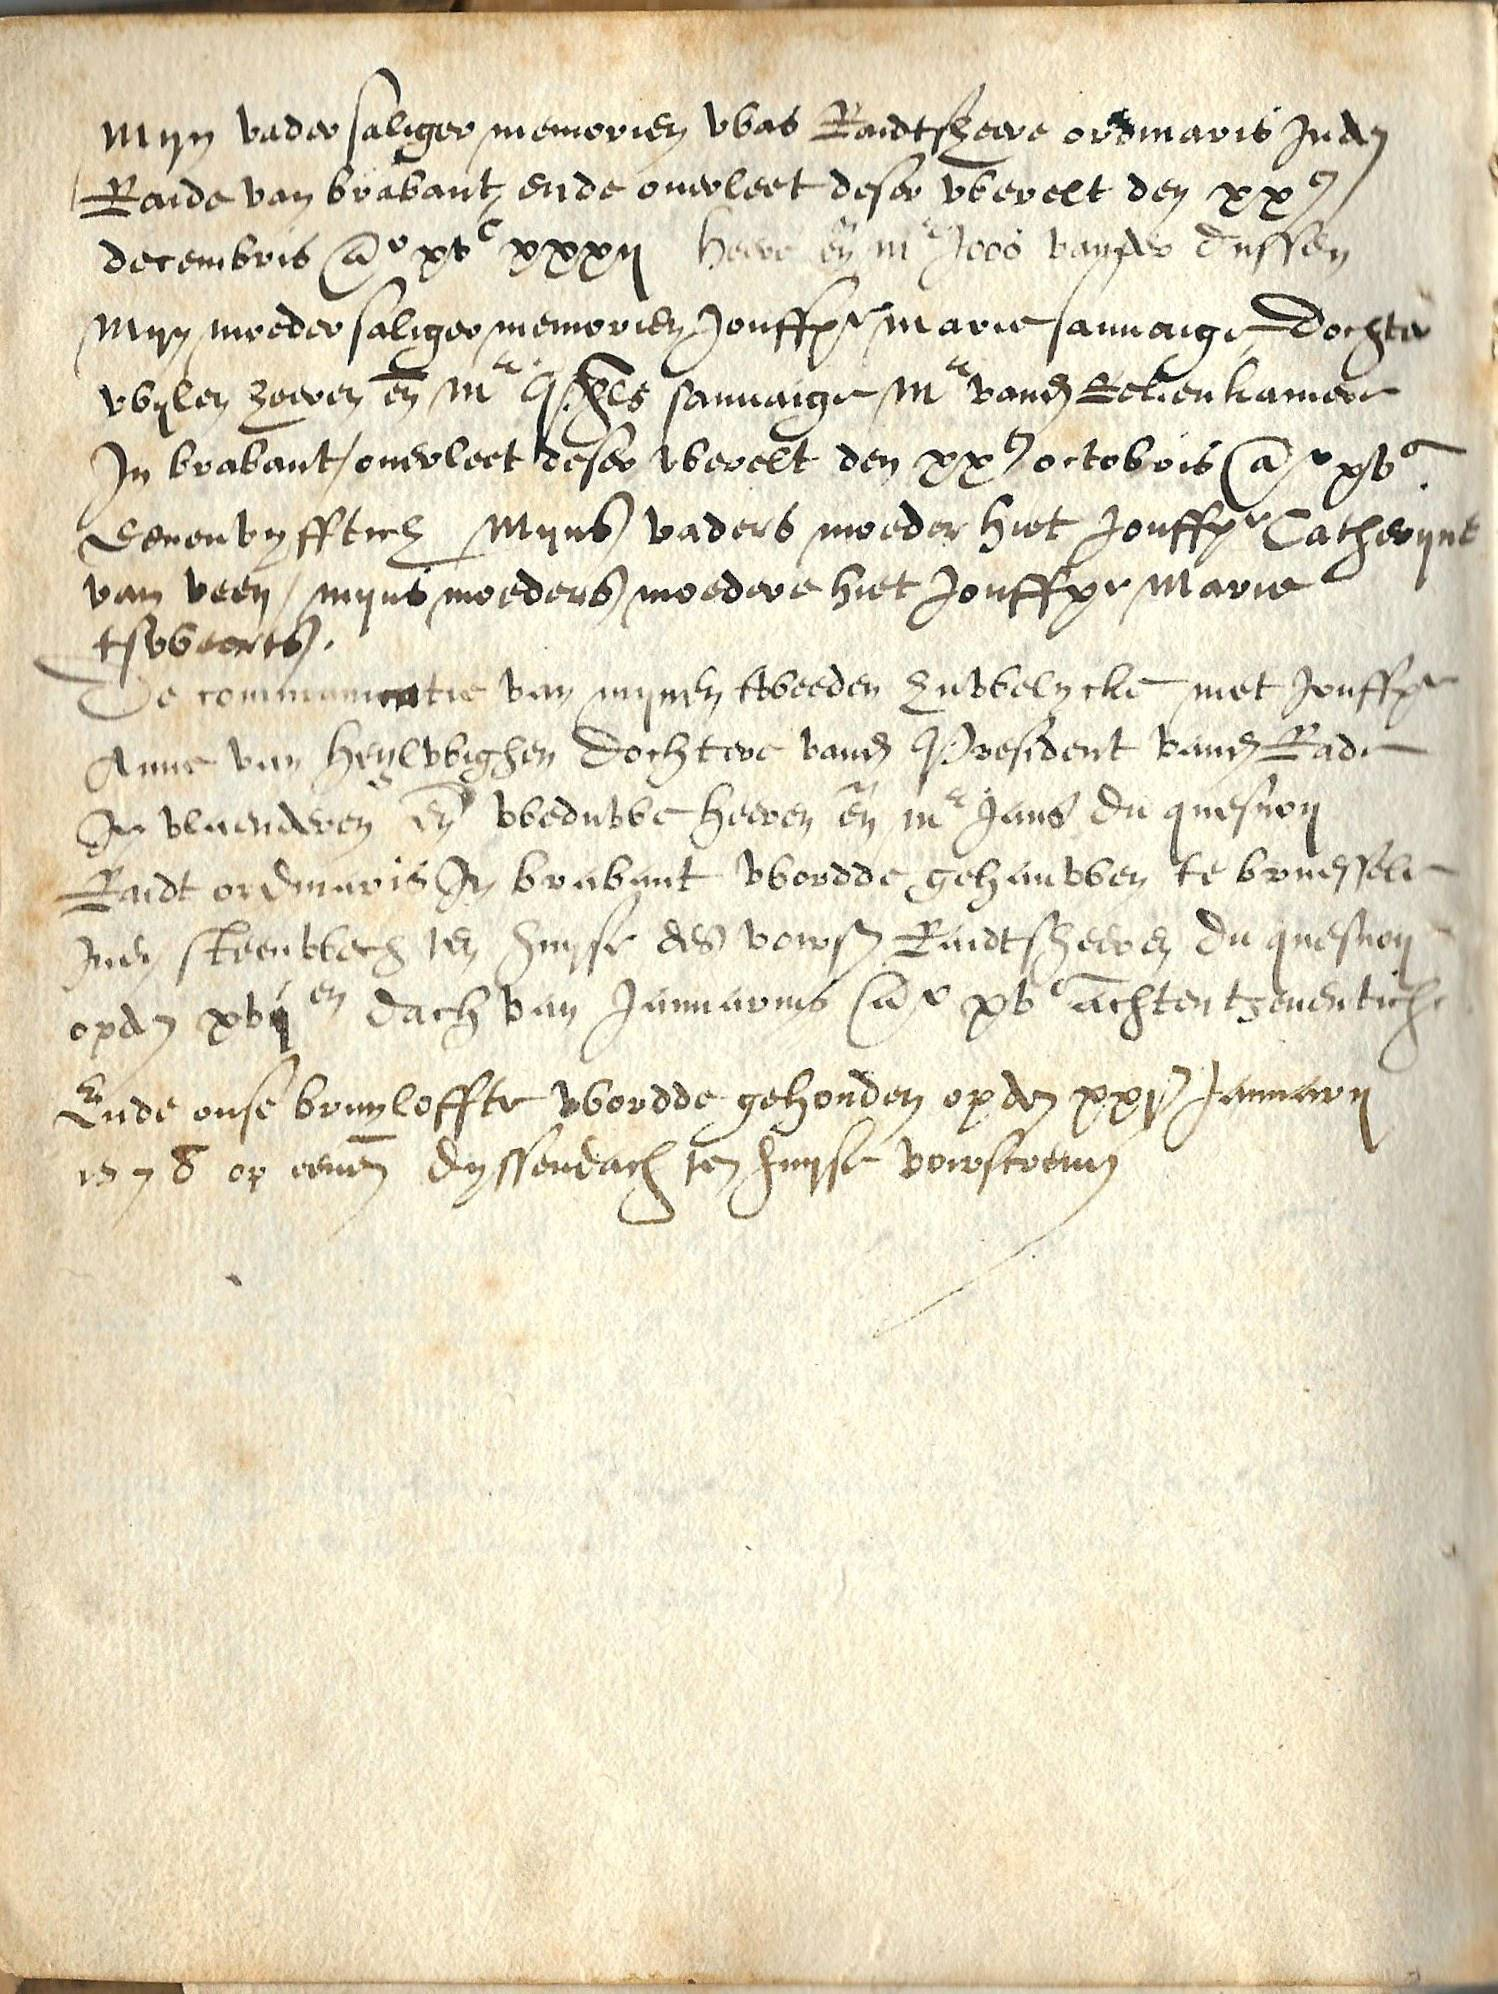 Mijn vader saliger memorien was Raidtsheere ordinaris Inden
Raide van brabant, ende ouerleet deser werelt den xxen
decembris a° xvc xxxij heere en mr Joos vander dussen
Mijn moeder saliger memorien Jouffr marie sauuaige dochter
wijlen heeren en mr sauuaige mr vand Rekenkamere
In brabant / ouerleet deser werelt den xxen octobris a° xvc
eenenvyfftich Mijns vaders moeder hiet Jouffr Catherijne
van veen / mijns moeders moedere hiet Jouffr Marie
tsweerts.
De communicatie van mijnen tweeden huwelycke met Jouffr
Anna van heylwighen dochtere vand President vand Rade
In vlaenderen en weduwe heeren en mr Jans du quesnoy
Raidt ordinaris In brabant wordde gehauwen te bruessele
Inden steenwech ten huyse des voirs Raidtsheeren du quesnoy
opden xvijen dach van Januarius a° xvc achtentzeuentich
Ende onse bruyloffte wordde gehouden opden Januarij
1578 op eenen dyssendach ten huyse voirscreven